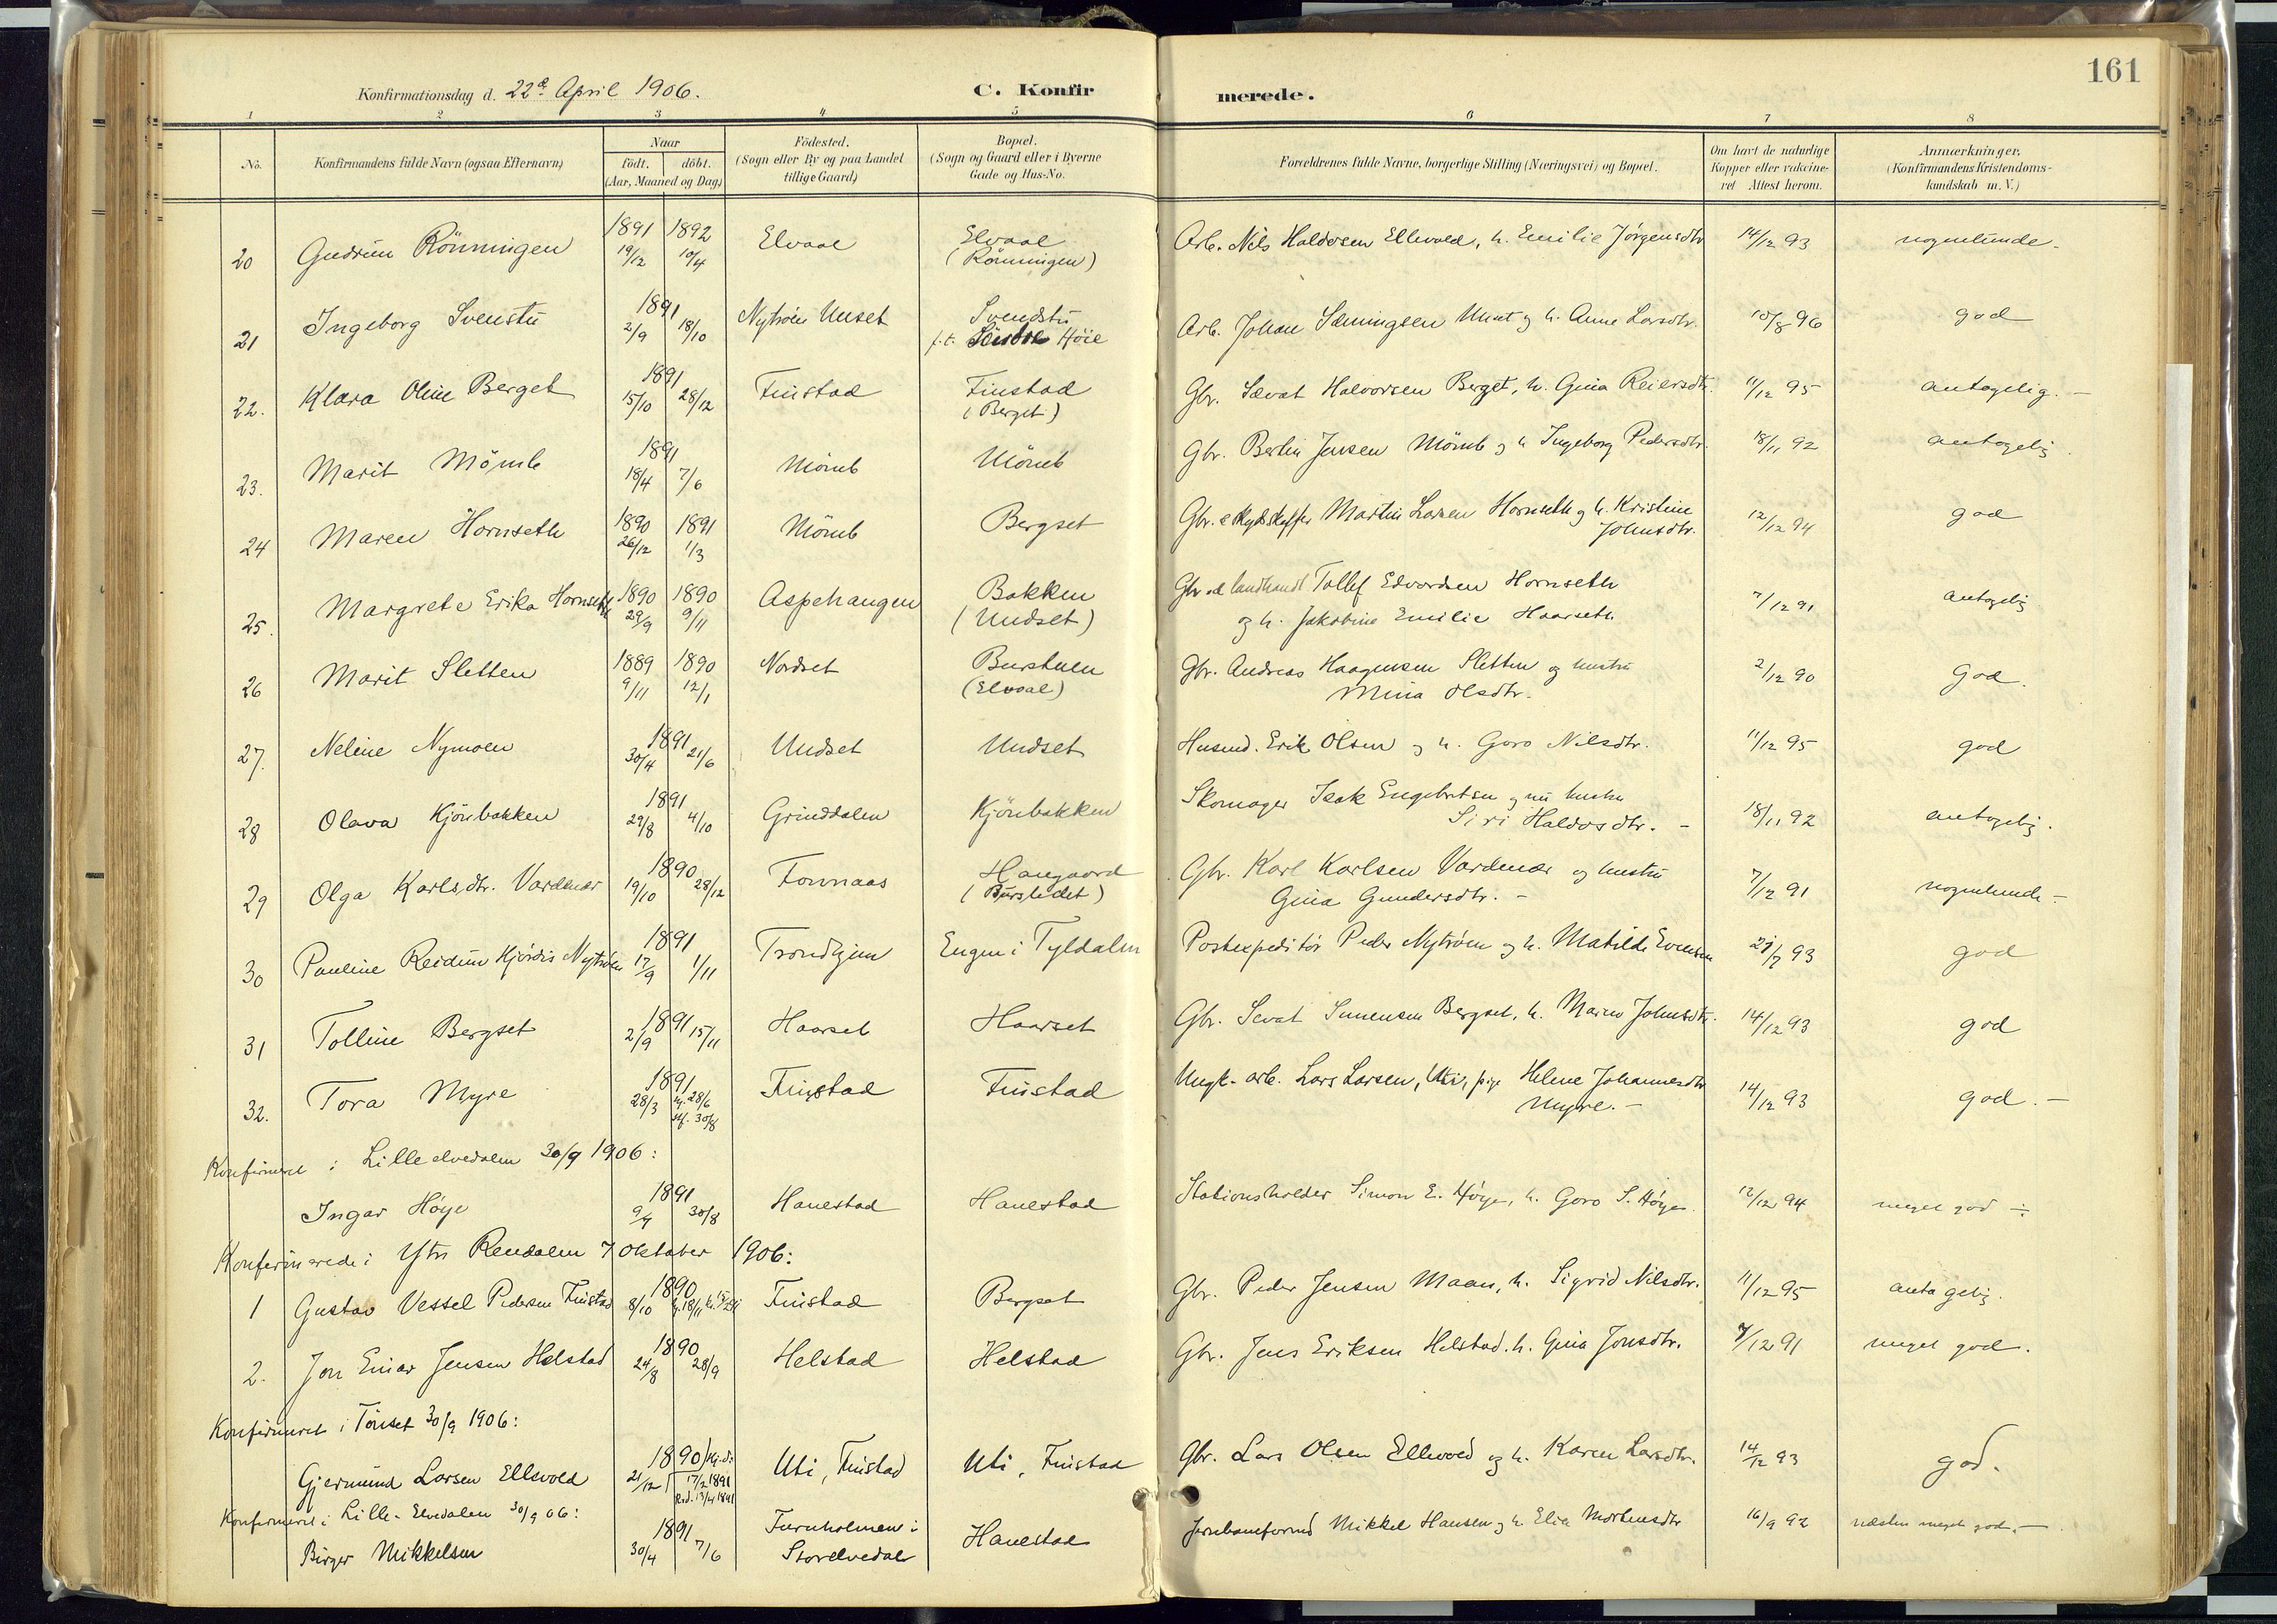 161
Konfirmationsdag d. 22de April 1906.
C. Konfirmerede.
1 2 3 4 5 6 7 8
No.
Konfirmandens fulde Navn (ogsaa Efternavn)
Naar
födt. döbt.
(Aar, Maaned og Dag)
Födested.
(Sogn eller By og paa Landet
tillige Gaard)
Bopæl.
(Sogn og Gaard eller i Byerne
Gade og Hus-No.
Forældrenes fulde Navne, borgerlige Stilling (Næringsvei) og Bopæl.
Om havt de naturlige
Kopper eller vakcine-
ret Attest herom.
Anmærkninger.
(Konfirmandens Kristendoms-
kundskab m. V.)
20 Gudrun Rönningen 1891 19/12 1892 10/4 Elvaal Elvaal (Rönningen) Arb. Nils Haldosen Ellevold, h. Emilie Jörgensdtr 14/12 93 nogenlunde.
21 Ingeborg Svenstu 1891 2/9 18/10 Nytröen Unset Svendstu f.t. Höie Arb. Johan Sæmingsen Unset og h. Anne Larsdtr. 10/8 96 god
22. Klara Oline Berget 1891 15/10 28/12 Finstad Finstad (Berget) Gbr. Sævat Halvorsen Berget, h. Gina Reiersdtr. 11/12 95 antagelig.
23. Marit Mömb 1891 18/4 7/6 Mömb Mömb Gbr. Berlin Jensen Mömb og h Ingeborg Pedersdtr. 18/11 92 antagelig
24 Maren Hornseth 1890 26/12 1891 1/3 Mömb Bergset Gbr. & skydsskaffer Martin Larsen Hornseth og h. Kristine
Johnsdtr. 12/12 94 god
25. Margrete Erika Hornseth 1890 29/9 1890 9/11 Aspehaugen Bakken (Undset) Gbr og landhandl Tollef Edvardsen Hornseth
og h. Jakobine Emilie Haarseth 7/12 91 antagelig
26 Marit Sletten 1889 9/11 1890 12/1 Nordset Burstuen (Elvaal) Gbr. Andreas Haagensen Sletten og hustru
Mina Olsdtr. 2/12 90 God.
27. Neline Nymoen 1891 30/4 21/6 Undset Undset Husmd. Erik Olsen og h. Goro Nilsdtr. 11/12 95 god
28 Olava Kjönbakken 1891 29/8 4/10 Grinddalen Kjönbakken Skomager Isak Engebretsen og hustru
Siri Haldosdtr. 18/11 92 antagelig.
29 Olga Karlsdtr. Vardenær 1890 19/10 28/12 Fornaas Haugaard (Burstedet) Gbr. Karl Karlsen Vardenær og hustru
Gina Gundersdtr. 7/12 91 nogenlunde
30 Pauline Reidun Hjördis Nytröen 1891 17/9 1/11 Trondhjem Engen i Tyldalen Postexpeditör Peder Nytröen og h. Matilde Evensen 21/7 93 god
31 Tolline Bergset 1891 2/9 15/11 Haarset Haarset Gbr. Sevat Simensen Bergset, h. Maren Johnsdtr. 14/12 93 god
32. Tora Myre 1891 28/3 hj. 28/6 stf. 30/8 Finstad Finstad Ungk. arb. Lars Larsen, Uti, pige Helene Johannesdtr
Myre. 14/12 93 god.
Konfirmeret i Lilleelvedalen 30/9 1906:
Ingar Höye 1891 9/7 30/8 Hanestad Hanestad Stationsholder Simon E. Höye, h. Goro S. Höye. 12/12 94 meget god
Konfirmerede i Ytre Rendalen 7 Oktober 1906:
1 Gustav Vessel Pedersen Finstad 1890 8/10 hj. 18/11 Finstad Bergset Gbr. Peder Jensen Maan, h. Sigrid Nilsdtr. 11/12 95 antagelig.
2. Jon Einar Jensen Helstad 1890 24/8 28/9 Helstad Helstad Gbr. Jens Eriksen Helstad. h. Gina Jonsdtr. 7/12 91 meget god.
Konfirmeret i Tönset 30/9 1906:
Gjermund Larsen Ellevold 1890 21/12 hj.d. 17/2 1891 Uti, Finstad Uti, Finstad Gbr. Lars Olsen Ellevold og h. Karen Larsdtr. 14/12 93 god.
Konfirmeret i Lille-Elvedalen 30/9 06:
Birger Mikkelsen 1891 30/4 7/6 Furuholmen i Storelvedal Hanestad Jernbaneformd Mikkel Hansen og h. Elia Mortensdtr 16/9 92 næsten meget god.